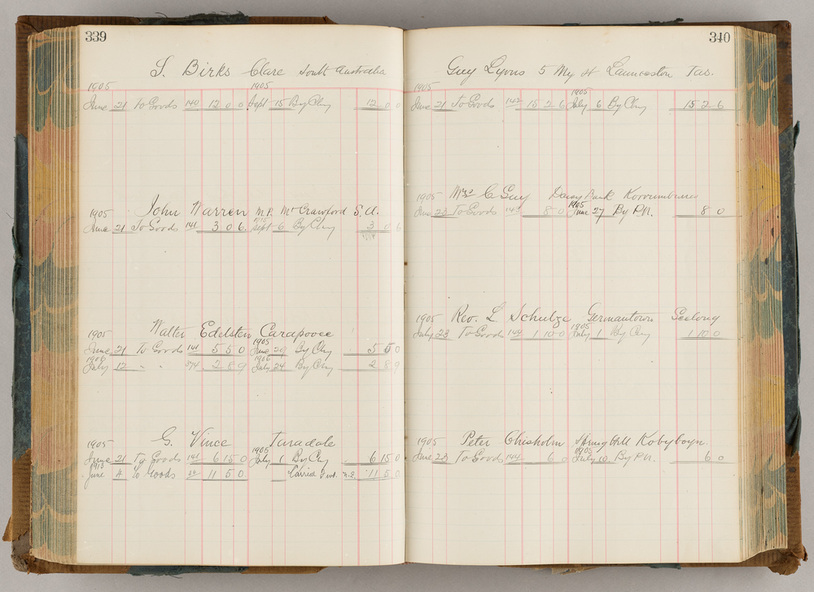 339
S. Birks Clare South Australia
1905 1905
June 21 To Goods 140 12 0 0 Sept 15 By Chq 12 0 0
John Warren M.P. Mt Crawford S.A.
1905 1905
June 21 To Goods 141 3 0 6 Sept 6 By Chq 3 0 6
Walter Edelsten Carapooee
1905 1905
June 21 To Goods 141 5 5 0 June 29 By Chq 5 5 0
1906 1906
July 12 " " 2 8 9 July 24 By Chq 2 8 9
G. Vince Taradale
1905 1905
June 21 To Goods 141 6 15 0 July 1 By Chq 6 15 0
June 2 To Goods 11 5 0 Carried Fwd. 11 5 0
340
Guy Lyons 5 My St Launceston Tas.
1905 1905
June 21 To Goods 142 15 2 6 July 6 By Chq 15 2 6
Mrs C Guy Daisy Bank Korrumburra
1905 1905
June 23 To Goods 8 0 June 27 By P.N. 8 0
Rev. L Schulze Germantown Geelong
1905 1905
July 23 To Goods 144 1 10 0 July 1 By Chq 1 10 0
Peter Chisholm Spring Hill Kobyboyn
1905 1905
June 23 To Goods 144 6 0 July 10 By P.N. 6 0